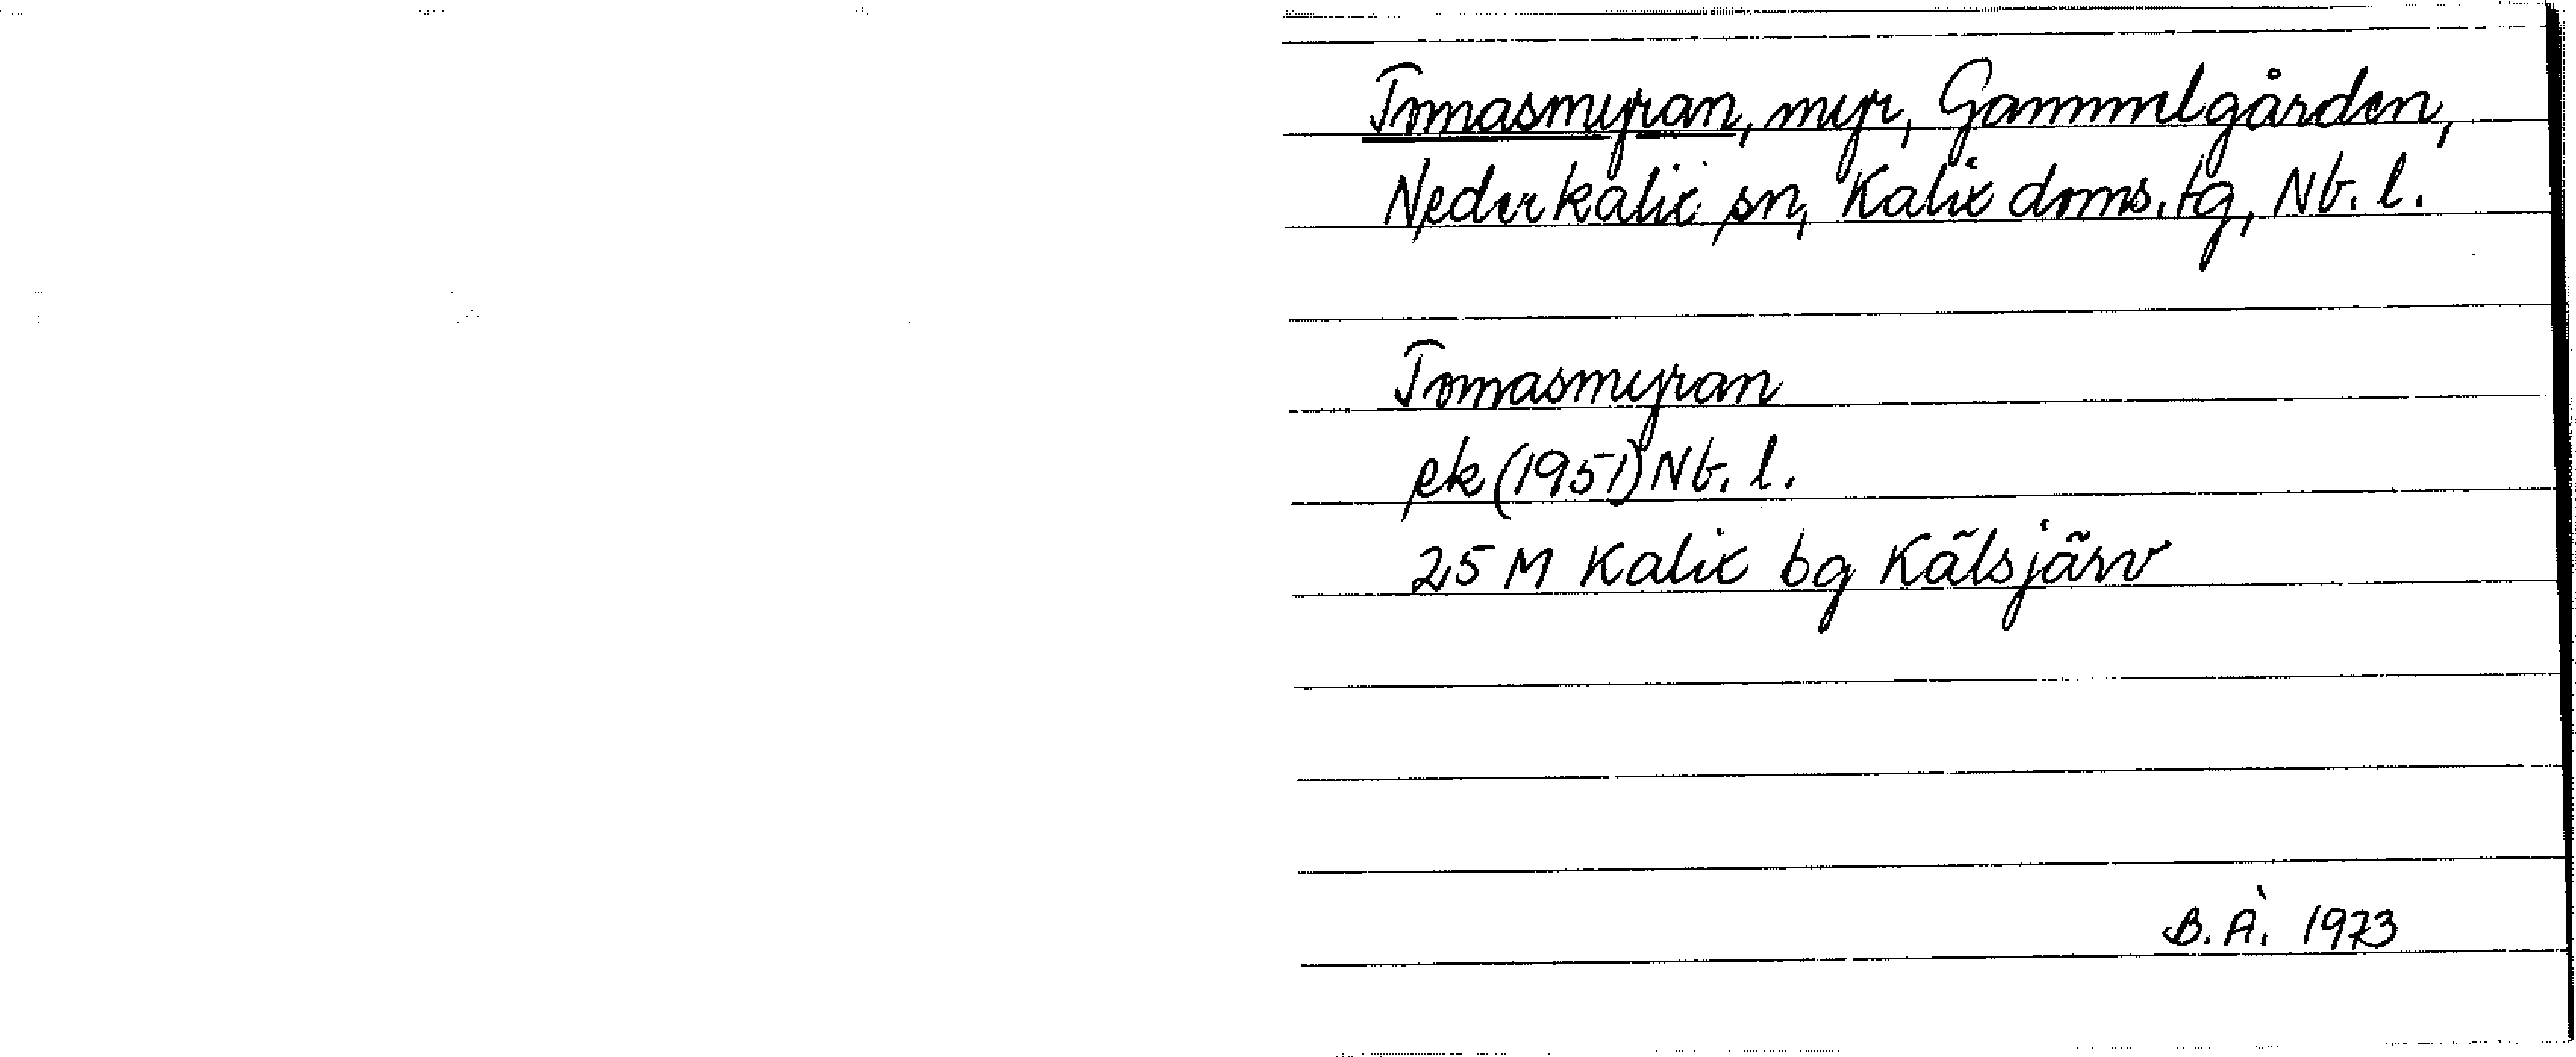 Tomasmyran, myr, Gammelgården,
Nederkalix sn, Kalix doms.tg, Nb. l.
Tomasmyran
ek (1951) Nb. l.
25 M Kalix bg Kälsjärv
B. Å. 1973